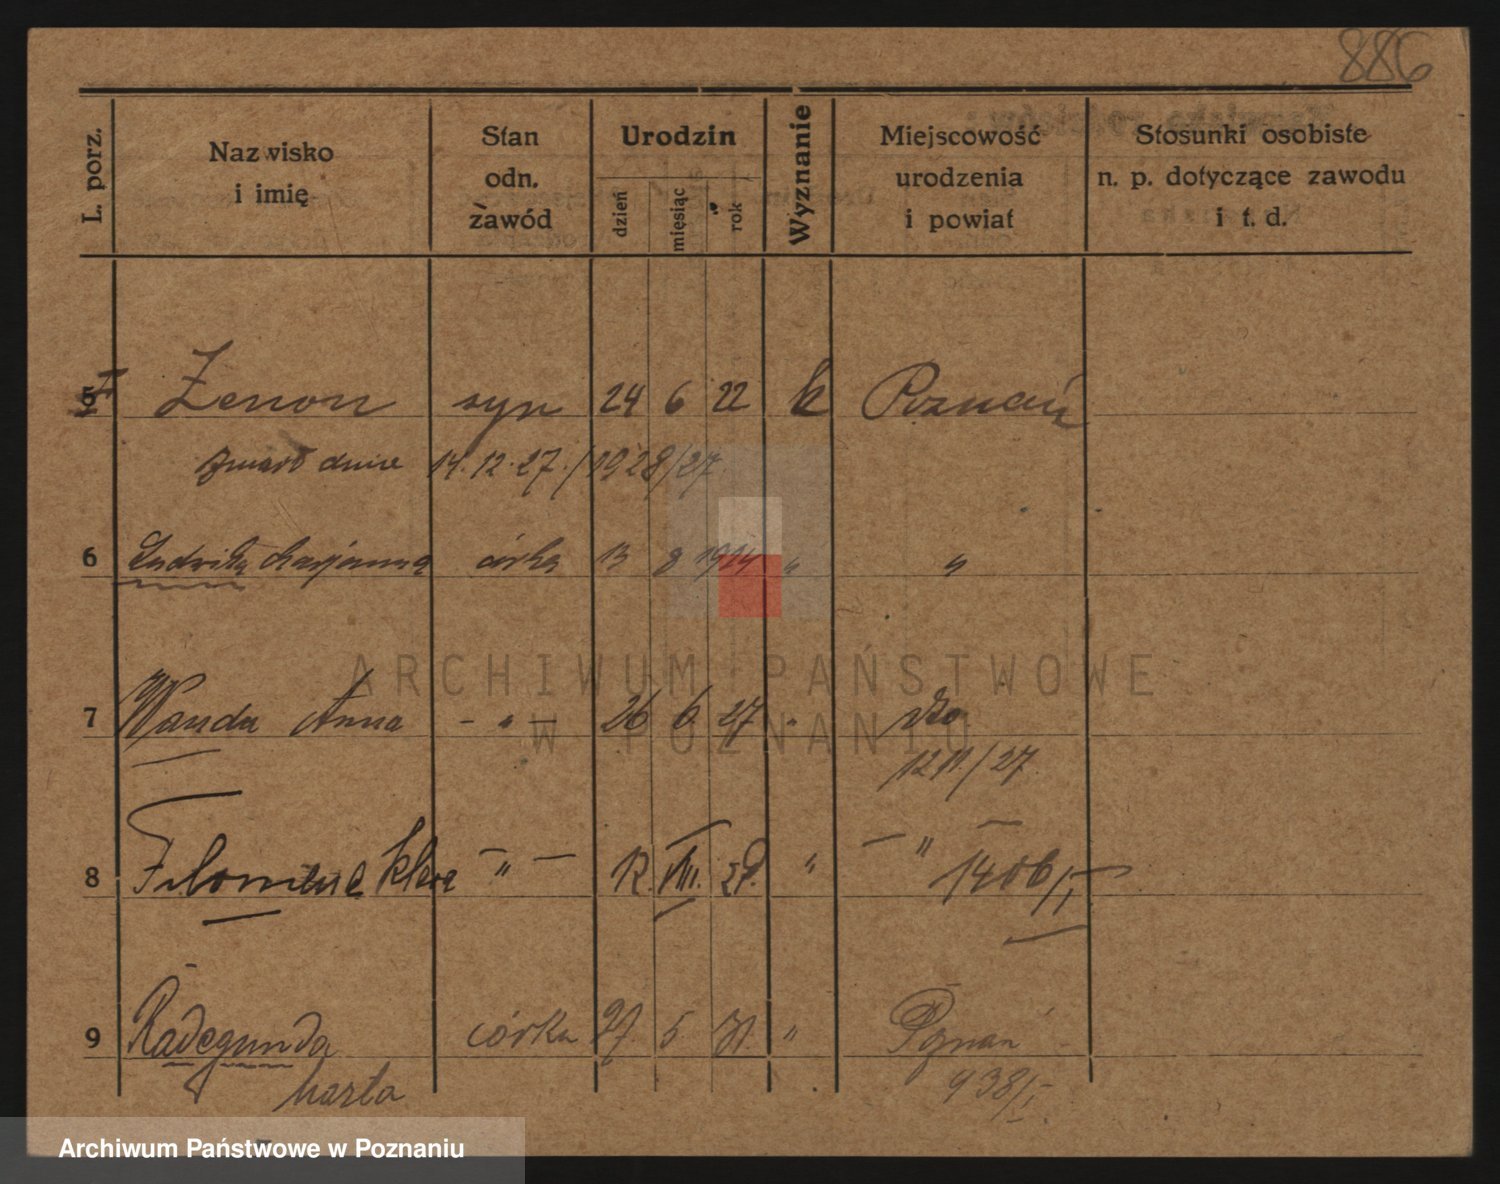 886
L. porz.
Nazwisko
i imię
Stan
odn.
zawód
Urodzin
dzień
miesiąc
rok
Wyznanie
Miejscowość
urodzenia
i powiat
Stosunki osobiste
n. p. dotyczące zawodu
i t. d.
5 Zenon syn 24 6 22 k Poznań
zmarł dnia 14.12.27./1928/27
6 Ludwika Marjanna córka 13 8 1924 " "
7 Wanda Anna - " - 26 6 27 "
1211/27
8 Filomena Klara - " - 12. VIII. 29. " - " -
1406/I
9 Radegunda córka 27. 5 31. " Poznań
Marta 938/I
ARCHIWUM PAŃSTWOWE
W POZNANIU
Archiwum Państwowe w Poznaniu